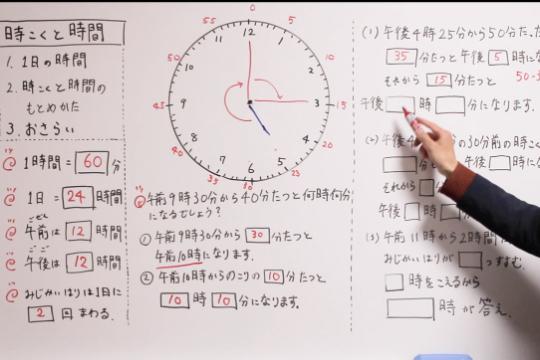 時こくと時間
1. 1日の時間
2. 時こくと時間の
もとめかた
3. おさらい
1時間=60分
1日=24時間
ごぜん
午前は12時間
ごご
午後は12時間
みじかいはりは1日に
2回まわる.
0
5
10
15
20
25
30
35
40
45
50
55
12
1
2
3
4
5
6
7
8
9
10
11
午前9時30分から40分たつと何時何分
になるでしょう?
① 午前9時30分から30分たつと
午前10時になります.
② 午前10時からのこりの10分たつと
10時10分になります.
(1) 午後4時25分から50分たった
35分たつと午後5時にな
それから15分たつと
50-3
午後 時 分になります.
(2) 午後4 の30分前の時こく
分 午後 時に
それから
午後 時 分
(3) 午前11時から2時間
みじかいはりが つすすむ.
時をこえるから
時が答え.